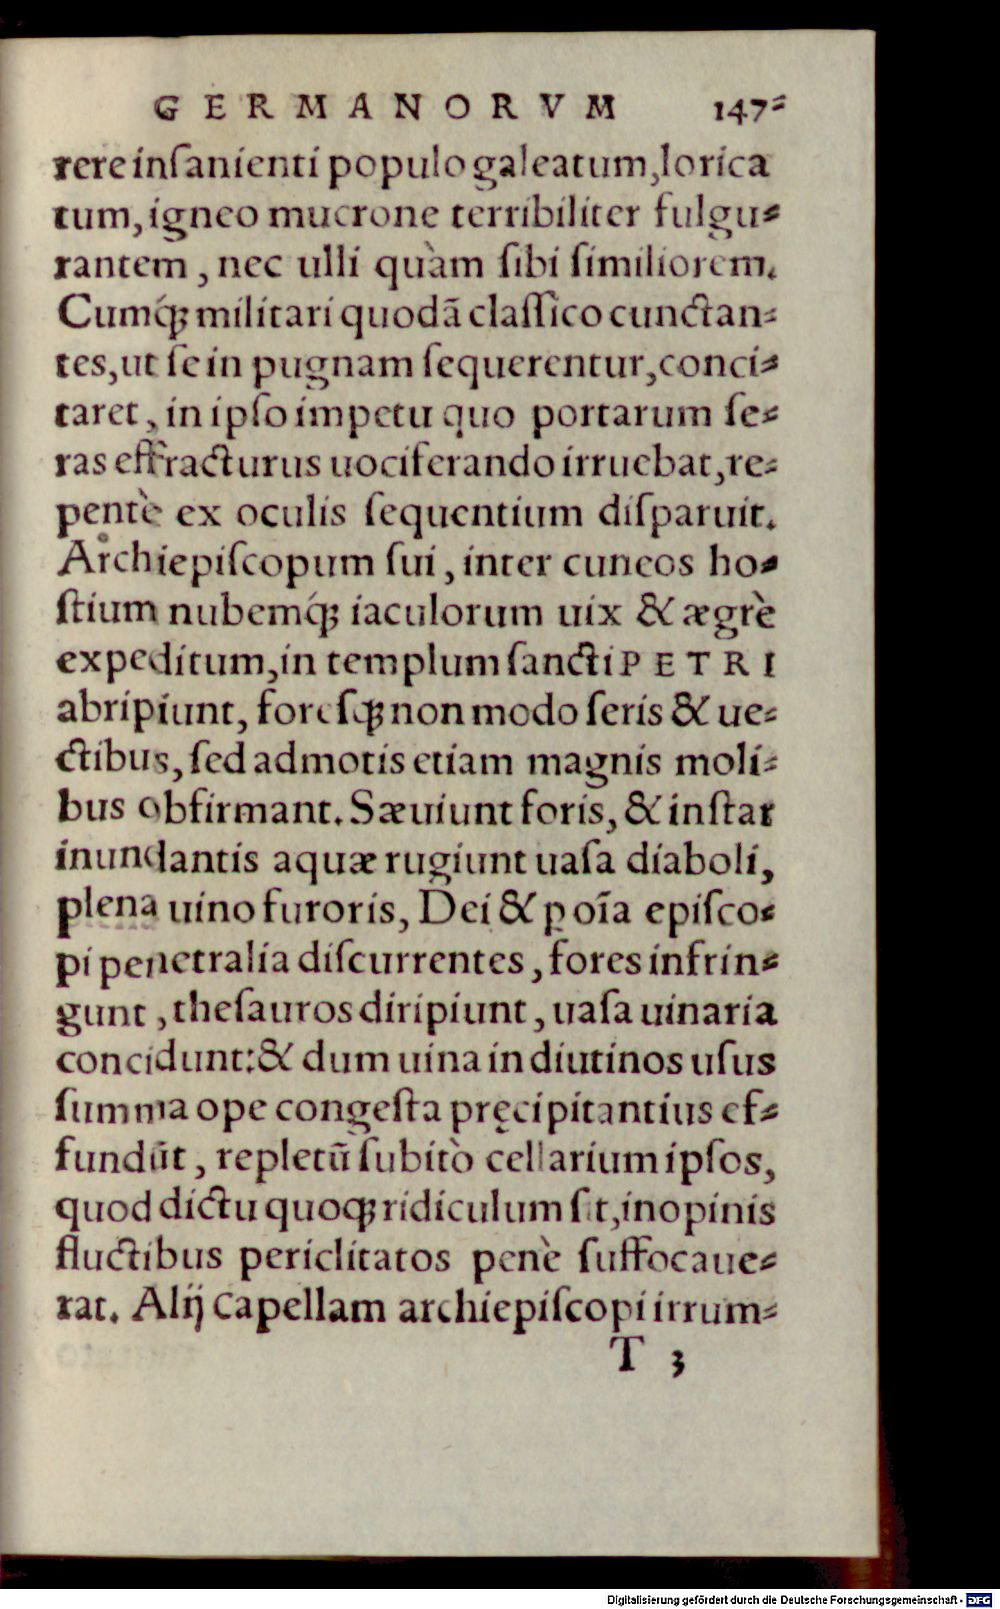 GERMANORVM 147⸗
rere inſanienti populo galeatum, lorica
tum, igneo mucrone terribiliter fulgu⸗
rantem, nec ulli quàm ſibi ſimiliorem.
Cumq́; militari quodã claſſico cunctan⸗
tes, ut ſe in pugnam ſequerentur, conci⸗
taret, in ipſo impetu quo portarum ſe⸗
ras effracturus uociferando irruebat, re⸗
pentè ex oculis ſequentium diſparuit.
Archiepiſcopum ſui, inter cuneos ho⸗
ſtium nubemq́; iaculorum uix & ægrè
expeditum, in templum ſancti PETRI
abripiunt, foresq; non modo ſeris & ue⸗
ctibus, ſed admotis etiam magnis moli⸗
bus obfirmant. Sæuiunt foris, & inſtar
inundantis aquæ rugiunt uaſa diaboli,
plena uino furoris, Dei & ꝑ oĩa epiſco⸗
pi penetralia diſcurrentes, fores infrin⸗
gunt, theſauros diripiunt, uaſa uinaria
concidunt: & dum uina in diutinos uſus
ſumma ope congeſta pręcipitantius ef⸗
fundũt, repletũ ſubitò cellarium ipſos,
quod dictu quoq; ridiculum ſit, inopinis
fluctibus periclitatos penè ſuffocaue⸗
rat. Alij capellam archiepiſcopi irrum⸗
T 3
Digitalisierung gefördert durch die Deutsche Forschungsgemeinschaft - DFG